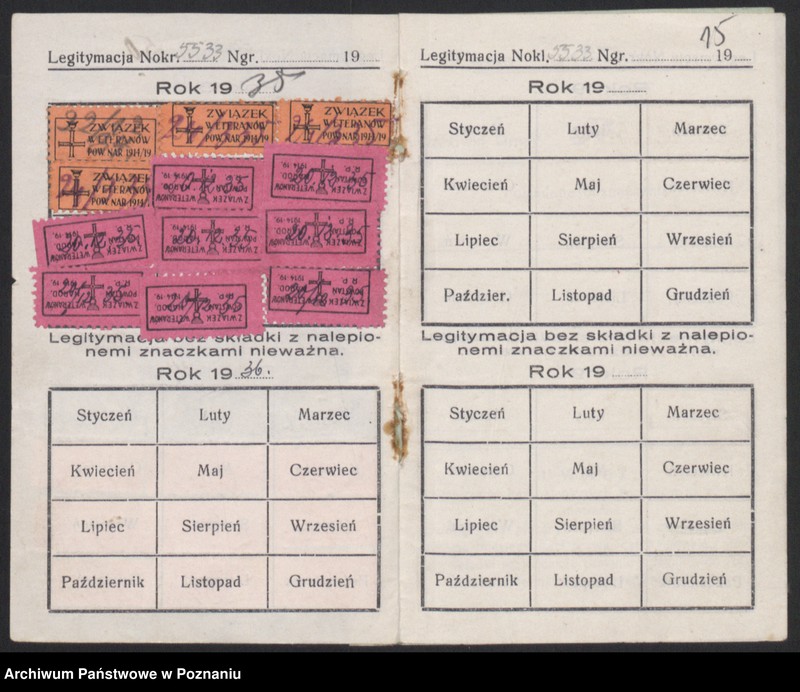 Legitymacja Nokr. 5533 Ngr. 19
Rok 19 35
ZWIĄZEK
WETERANÓW
POW. NAR 1914/19
ZWIĄZEK
WETERANÓW
POW. NAR 1914/19
ZWIĄZEK
WETERANÓW
POW. NAR 1914/19
ZWIĄZEK
WETERANÓW
POW. NAR 1914/19
ZWIĄZEK WETERANÓW
POWSTAŃ NAROD.
R.P. 1914-19.
Legitymacja bez składki z nalepio-
nemi znaczkami nieważna.
Rok 19 36.
Styczeń Luty Marzec
Kwiecień Maj Czerwiec
Lipiec Sierpień Wrzesień
Październik Listopad Grudzień
15
Legitymacja Nokl. 5533 Ngr. 19
Rok 19
Styczeń Luty Marzec
Kwiecień Maj Czerwiec
Lipiec Sierpień Wrzesień
Paździer. Listopad Grudzień
Legitymacja bez składki z nalepio-
nemi znaczkami nieważna.
Rok 19
Styczeń Luty Marzec
Kwiecień Maj Czerwiec
Lipiec Sierpień Wrzesień
Październik Listopad Grudzień
Archiwum Państwowe w Poznaniu